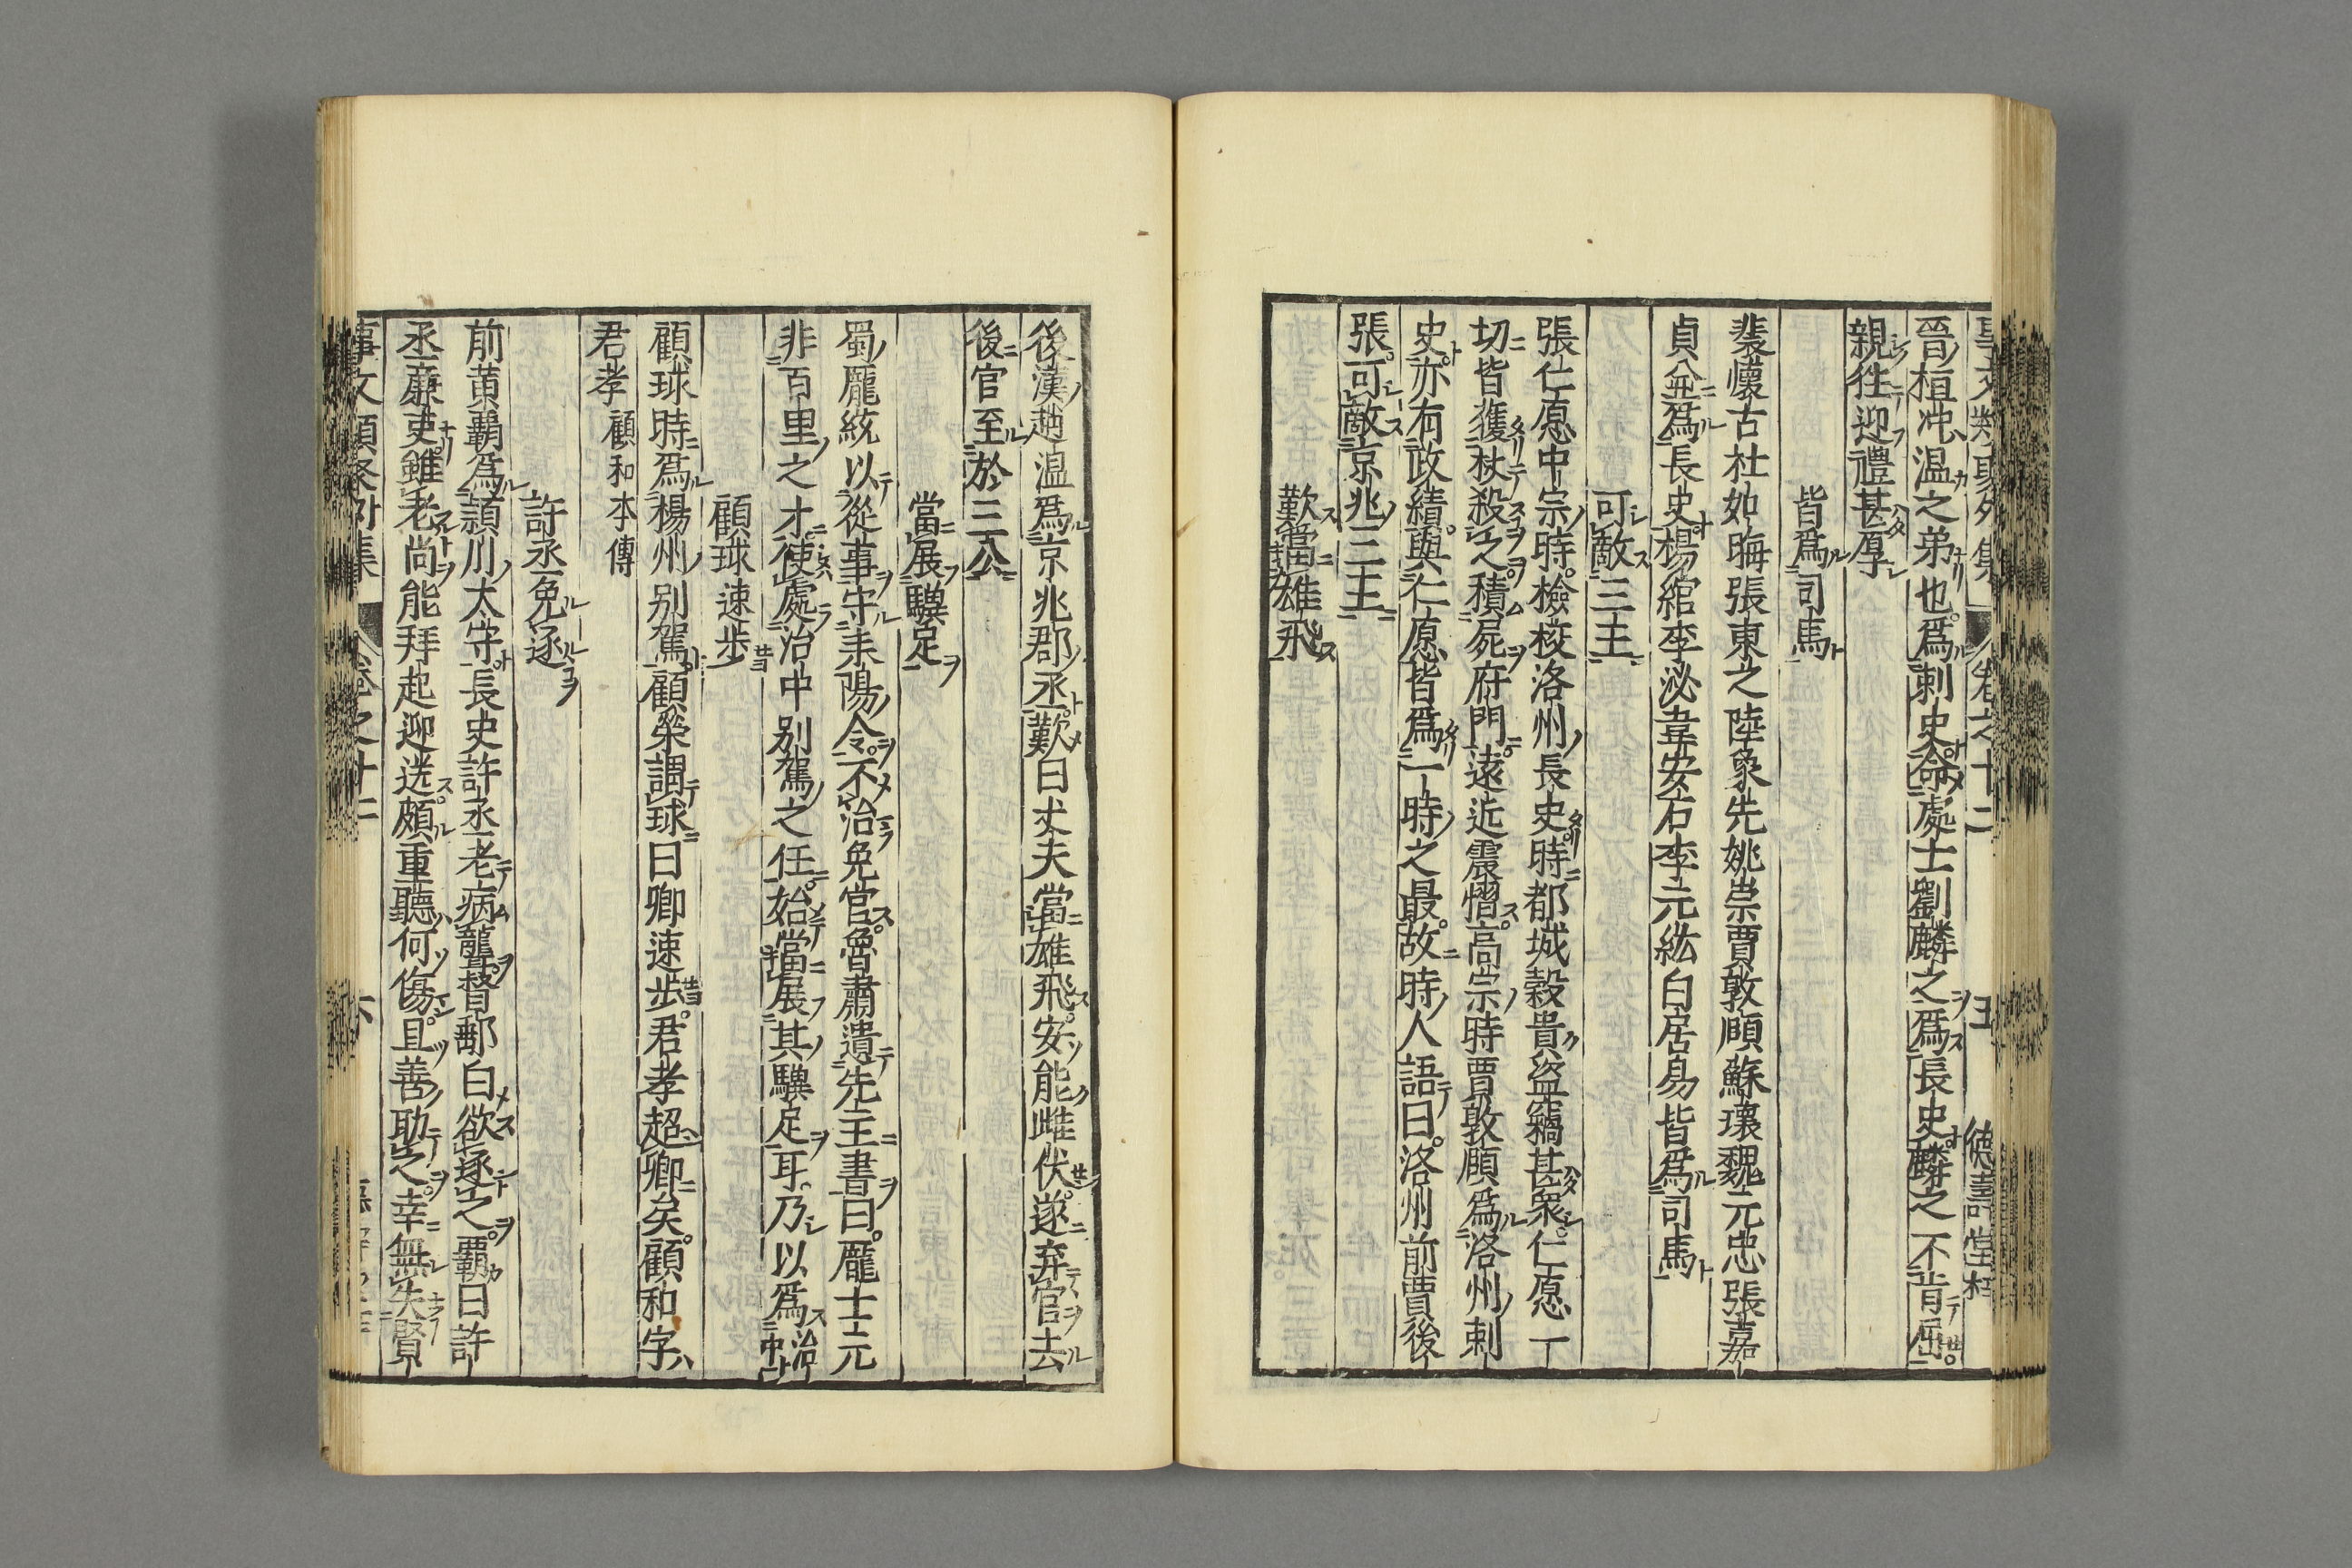 事文類聚外集 卷之十二 五 德壽堂梓
晉桓沖温之弟也爲刺史命處士劉麟之爲長史麟之不肯屈
親往迎禮甚厚
皆爲司馬
裴懷古杜如晦張東之陸象先姚崇賈敦頤蘇瓌魏元忠張嘉
貞並爲長史楊綰李泌韋安石李元紘白居易皆爲司馬
可敵三王
張仁愿中宗時檢校洛州長史時都城穀貴盜竊甚衆仁愿一
切皆獲杖殺之積屍府門遠近震慴高宗時賈敦頤爲洛州刺
史亦有政績與仁愿皆爲一時之最故時人語曰洛州前賈後
張可敵京兆三王
歎當雄飛
後漢趙温爲京兆郡丞歎曰丈夫當雄飛安能雌伏遂弃官去
後官至於三公
當展驥足
蜀龐統以從事守耒陽令不治免官魯肅遺先主書曰龐士元
非百里之才使處治中別駕之任始當展其驥足耳乃以爲治中
顧球速步
顧球時爲楊州别駕顧榮謂球曰卿速步君孝超卿矣顧和字
君孝 顧和本傳
許丞免逐
前黄霸爲頴川太守長史許丞老病聾督郵白欲逐之霸曰許
丞廉吏雖老尚能拜起迎送頗重聽何傷且善助之幸無失賢
事文類聚外集 卷之十二 六